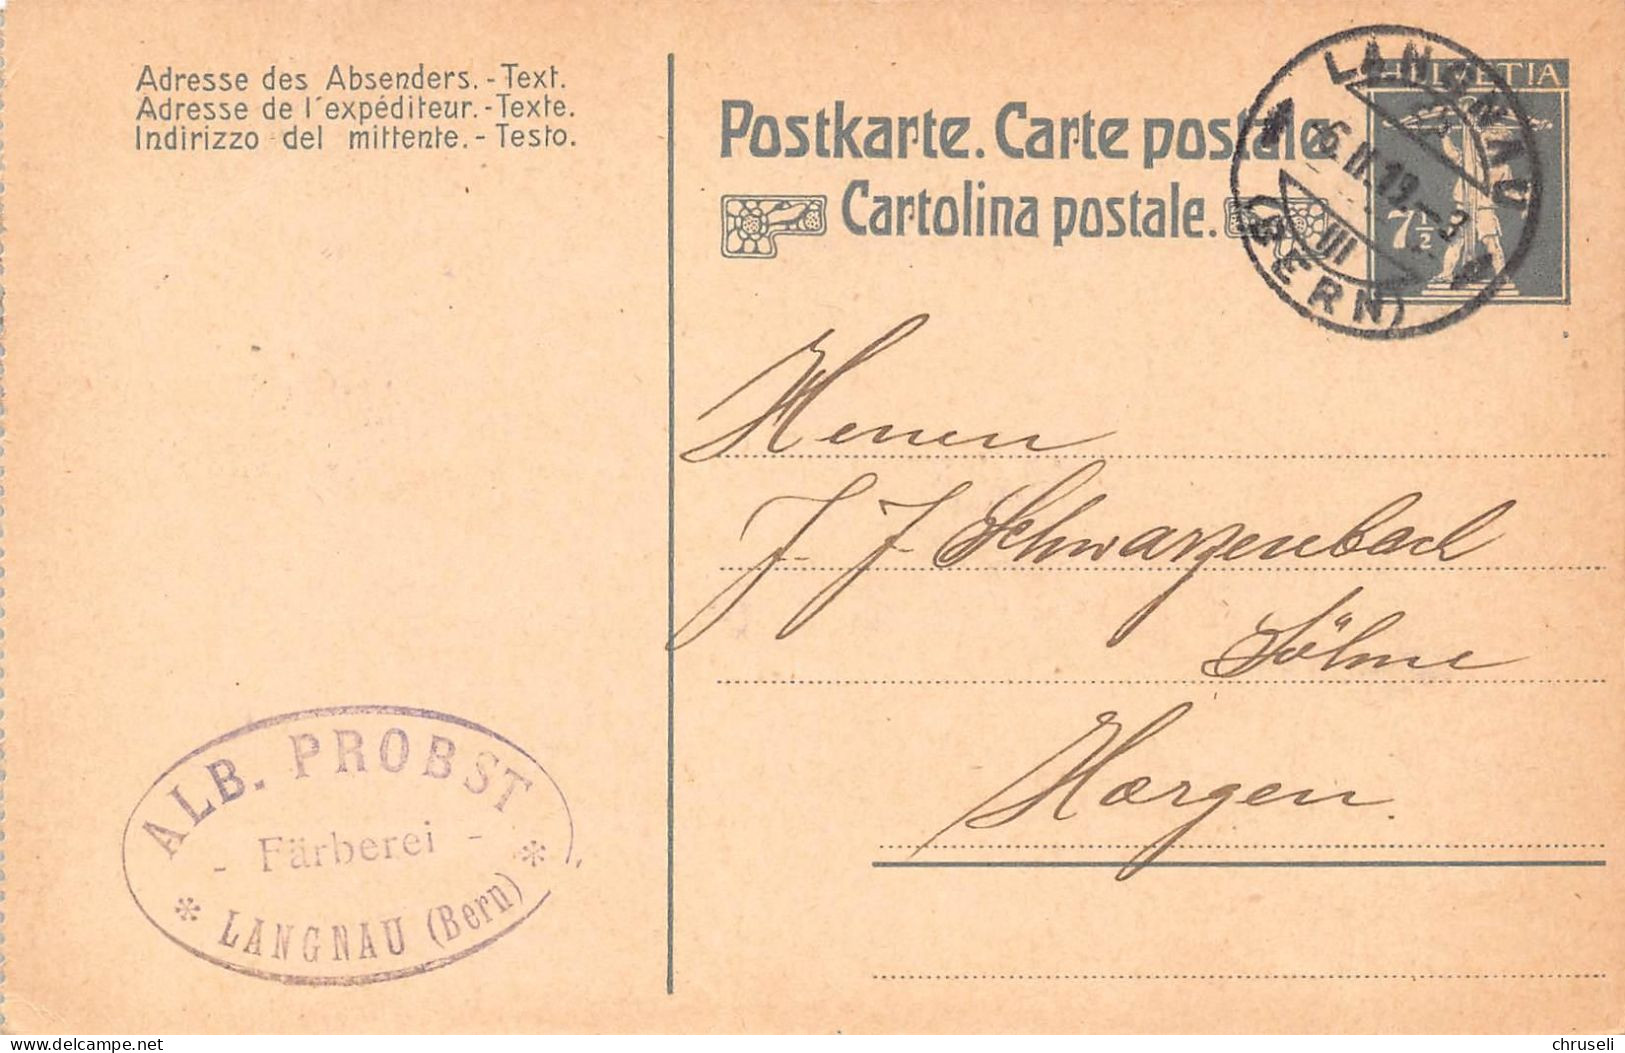 Adresse des Absenders. - Text.
Adresse de l'expéditeur. - Texte.
Indirizzo del mittente. - Testo.
Postkarte. Carte postale.
Cartolina postale.
HELVETIA
7½
LANGNAU
6.II.19.-3
III
(BERN)
Herren
J. J. Schwarzenbach
Söhne
Horgen.
ALB. PROBST
- Färberei -
* LANGNAU (Bern) *
chruseli